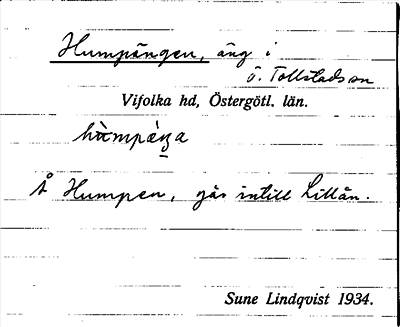 Humpängen, äng i
Ö. Tollstads sn
Vifolka hd, Östergötl. län.
hùmpæ̀ŋa
Å Humpen, går intill Lillån.
Sune Lindqvist 1934.